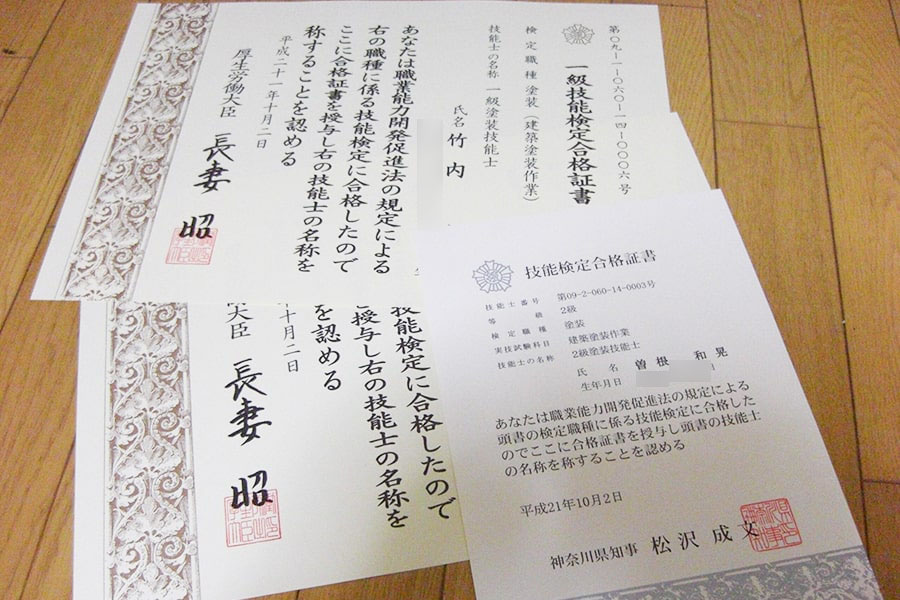 第〇九-一-〇六〇-一四-〇〇〇六号
一級技能検定合格証書
検定職種 塗装(建築塗装作業)
技能士の名称 一級塗装技能士
氏名 竹内
あなたは職業能力開発促進法の規定による
右の職種に係る技能検定に合格したので
ここに合格証書を授与し右の技能士の名称を
称することを認める
平成二十一年十月二日
厚生労働大臣 長妻 昭
技能検定に合格したので
授与し右の技能士の名称を
を認める
十月二日
大臣 長妻 昭
技能検定合格証書
技能士番号 第09-2-060-14-0003号
等級 2級
検定職種 塗装
実技試験科目 建築塗装作業
技能士の名称 2級塗装技能士
氏名 曽根 和晃
生年月日 日
あなたは職業能力開発促進法の規定による
頭書の検定職種に係る技能検定に合格した
のでここに合格証書を授与し頭書の技能士
の名称を称することを認める
平成21年10月2日
神奈川県知事 松沢成文